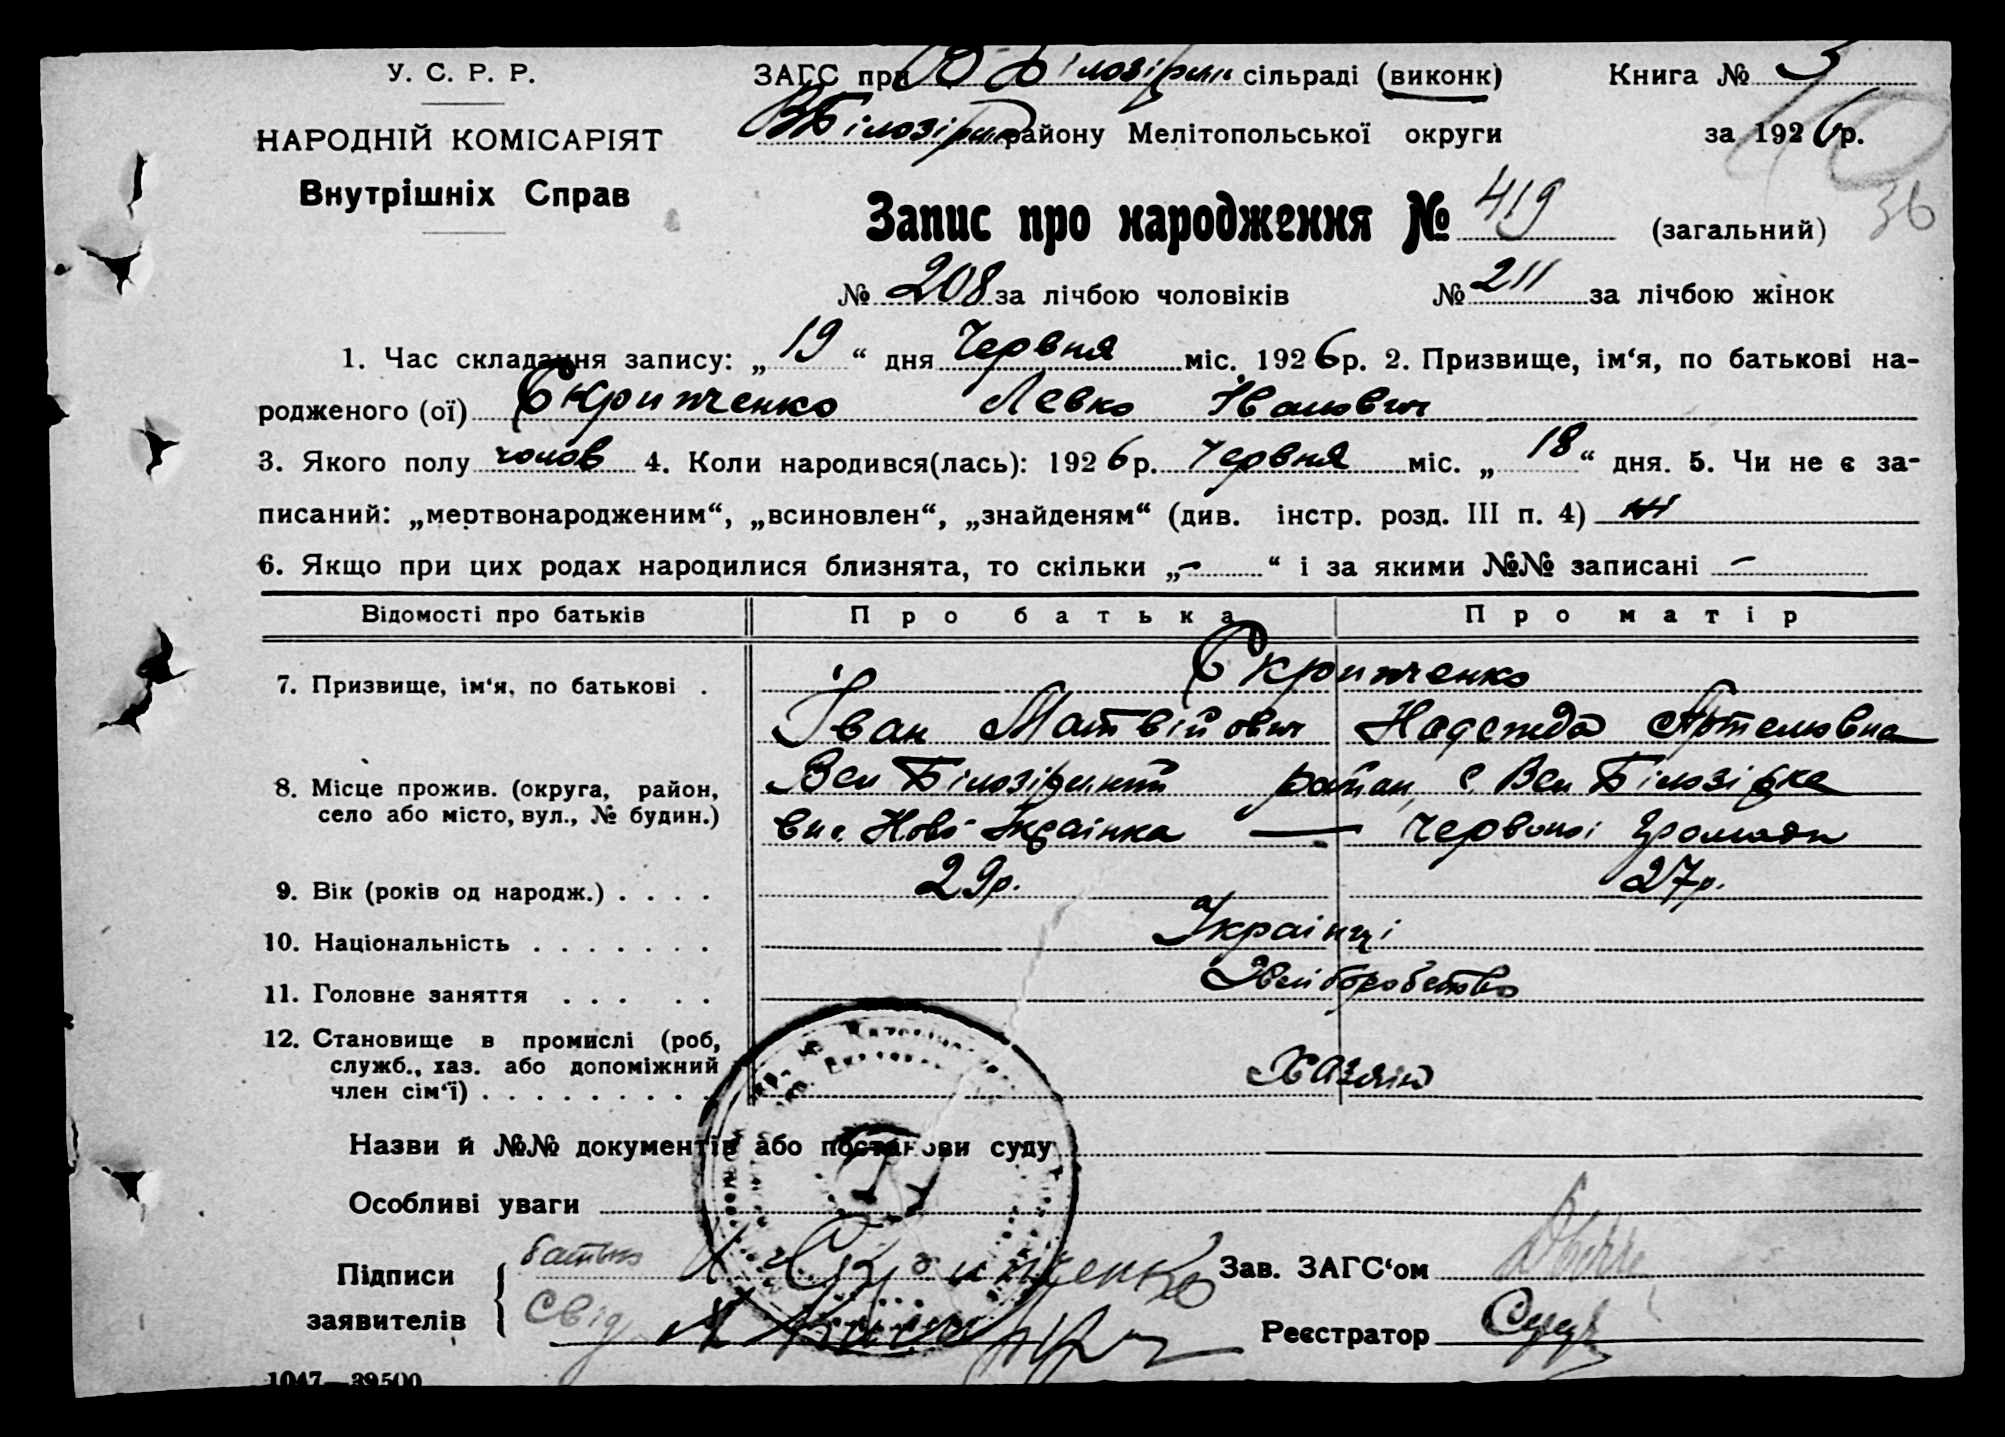 У. С. Р. Р.
НАРОДНІЙ КОМІСАРІЯТ
Внутрішніх Справ
ЗАГС при В Білозірськ сільраді (виконк)
В Білозірськ району Мелітопольської округи
Книга № 3
за 1926р.
36
Запис про народження № 419 (загальний)
№ 208 за лічбою чоловіків № 211 за лічбою жінок
1. Час складання запису: „ 19 “ дня Червня міс. 1926р. 2. Призвище, ім‘я, по батькові на-
родженого (ої) Скрипченко Левко Іванович
3. Якого полу чолов 4. Коли народився(лась): 1926р. Червня міс. „ 18 “ дня. 5. Чи не є за-
писаний: „мертвонародженим“, „всиновлен“, „знайденям“ (див. інстр. розд. III п. 4) ні
6. Якщо при цих родах народилися близнята, то скільки „ - “ і за якими №№ записані -
Відомості про батьків Про батька Про матір
7. Призвище, ім‘я, по батькові . Скрипченко
Іван Матвійович Надежда Артемовна
8. Місце прожив. (округа, район,
село або місто, вул., № будин.)
Вел Білозірський район, с Вел Білозірка
вис. Ново-Українка — Червоної Громади
9. Вік (років од народж.) . . . . 29р. 27р.
10. Національність . . . . . . . Українці
11. Головне заняття . . . . . Хліборобство
12. Становище в промислі (роб,
служб., хаз. або допоміжний
член сім‘ї) . . . . . . . . . Хазяїн
Назви й №№ документів або постанови суду
Особливі уваги
Підписи
заявителів
батько И Скрипченко
Свід
Зав. ЗАГС‘ом
Реєстратор
1047—39500